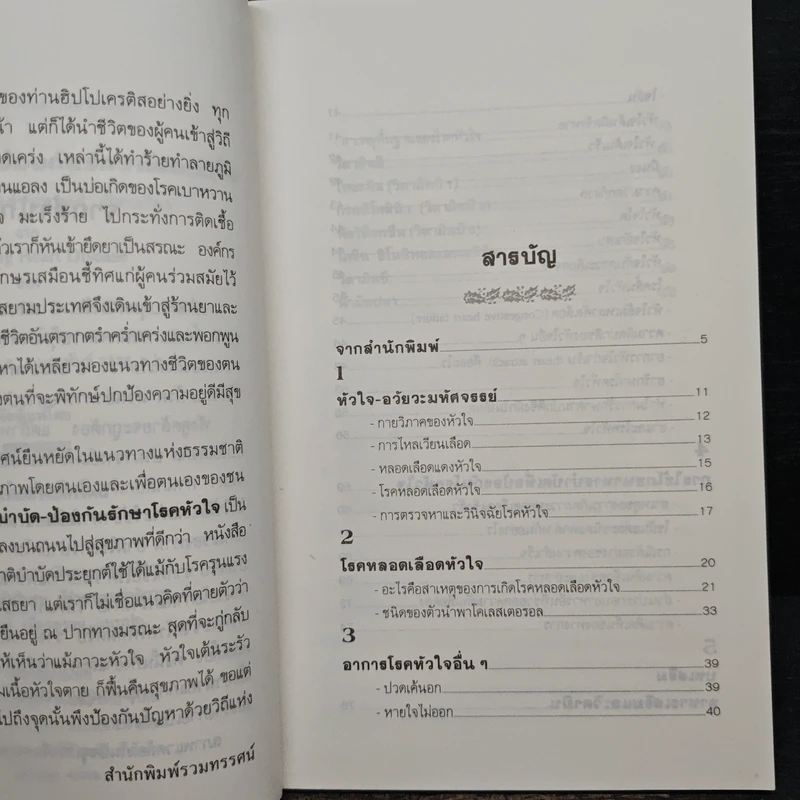 ของท่านฮิปโปเครติสอย่างยิ่ง ทุก
แต่ก็ได้นำชีวิตของผู้คนเข้าสู่วิถี
เหล่านี้ได้ทำร้ายทำลายภูมิ
เป็นบ่อเกิดของโรคเบาหวาน
มะเร็งร้าย ไปกระทั่งการติดเชื้อ
เราก็หันเข้ายึดยาเป็นสรณะ องค์กร
เสมือนชี้ทิศแก่ผู้คนร่วมสมัยไว้
สยามประเทศจึงเดินเข้าสู่ร้านยาและ
ชีวิตอันตรากตรำคร่ำเคร่งและพอกพูน
หาได้เหลียวมองแนวทางชีวิตของตน
ตนที่จะพิทักษ์ปกป้องความอยู่ดีมีสุข
ศน์ยืนหยัดในแนวทางแห่งธรรมชาติ
ภาพโดยตนเองและเพื่อตนเองของชน
บำบัด-ป้องกันรักษาโรคหัวใจ เป็น
ลงบนถนนไปสู่สุขภาพที่ดีกว่า หนังสือ
ติบำบัดประยุกต์ใช้ได้แม้กับโรครุนแรง
แต่เราก็ไม่เชื่อแนวคิดที่ตายตัวว่า
ยืนอยู่ ณ ปากทางมรณะ สุดที่จะกู่กลับ
ให้เห็นว่าแม้ภาวะหัวใจ หัวใจเต้นระรัว
มเนื้อหัวใจตาย ก็ฟื้นคืนสุขภาพได้ ขอแต่
ไปถึงจุดนั้นพึงป้องกันปัญหาด้วยวิถีแห่ง
สำนักพิมพ์รวมทรรศน์
สารบัญ
จากสำนักพิมพ์ 5
1
หัวใจ-อวัยวะมหัศจรรย์ 11
- กายวิภาคของหัวใจ 12
- การไหลเวียนเลือด 13
- หลอดเลือดแดงหัวใจ 15
- โรคหลอดเลือดหัวใจ 16
- การตรวจหาและวินิจฉัยโรคหัวใจ 17
2
โรคหลอดเลือดหัวใจ 20
- อะไรคือสาเหตุของการเกิดโรคหลอดเลือดหัวใจ 21
- ชนิดของตัวนำพาโคเลสเตอรอล 33
3
อาการโรคหัวใจอื่น ๆ 39
- ปวดเค้นอก 39
- หายใจไม่ออก 40